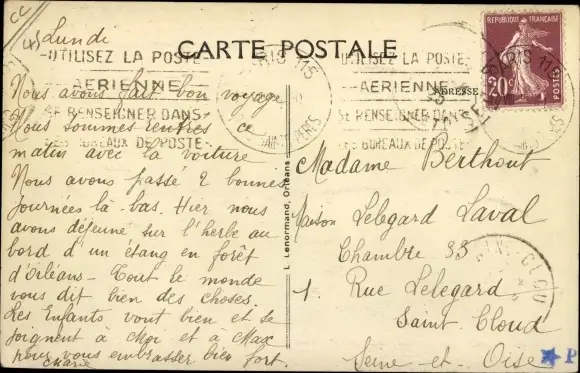 Lundi
UTILISEZ LA POSTE
AERIENNE
SE RENSEIGNER DANS
LES BUREAUX DE POSTE
PARIS 115
CARTE POSTALE
UTILISEZ LA POSTE
AERIENNE
SE RENSEIGNER DANS
LES BUREAUX DE POSTE
PARIS 115
REPUBLIQUE FRANÇAISE
20c
POSTES
ADRESSE
Nous avons fait bon voyage
Nous sommes rentrés ce
matin avec la voiture
Nous avons passé 2 bonnes
journées là-bas. Hier nous
avons déjeuné sur l'herbe au
bord d'un étang en forêt
d'Orléans - Tout le monde
vous dit bien des choses.
Les Enfants vont bien et se
joignent à Moi et à Max
pour vous embrasser bien fort.
Marie
L. Lenormand, Orléans
Madame Berthout
Maison Lelegard Laval
Chambre 33
1. Rue Lelegard
Saint Cloud
Seine-et-Oise
P